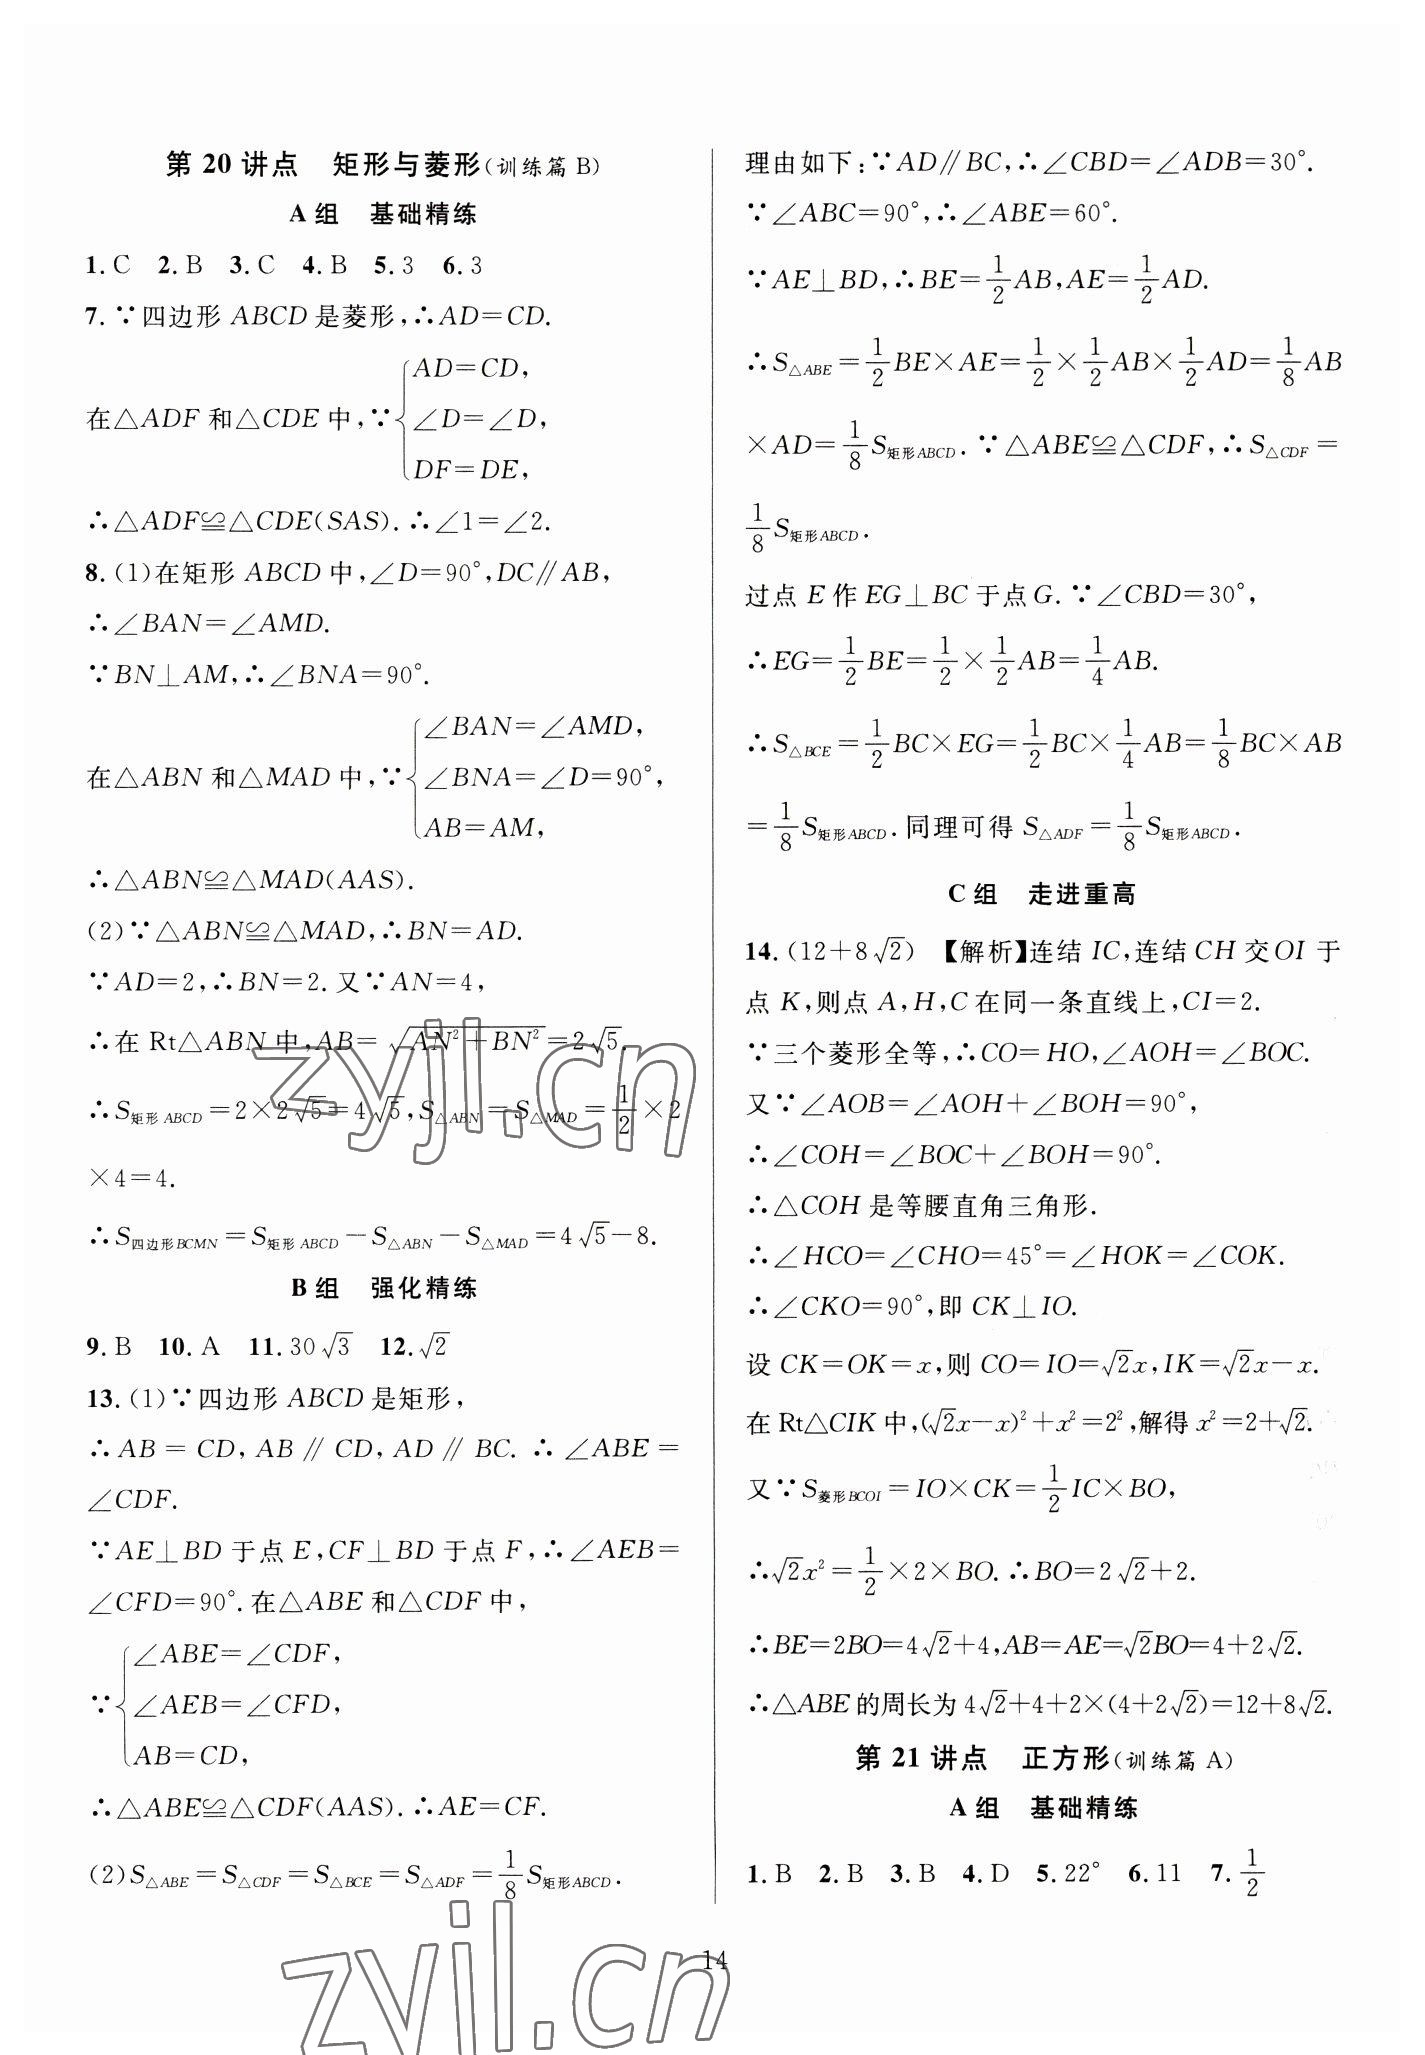 第 20 讲点　矩形与菱形(训练篇 B)
A 组　基础精练
1. C　2. B　3. C　4. B　5. 3　6. 3
7. ∵四边形 ABCD 是菱形,∴AD=CD.
在△ADF 和△CDE 中,∵{AD=CD,
∠D=∠D,
DF=DE,
∴△ADF≌△CDE(SAS). ∴∠1=∠2.
8. (1)在矩形 ABCD 中,∠D=90°,DC∥AB,
∴∠BAN=∠AMD.
∵BN⊥AM,∴∠BNA=90°.
在△ABN 和△MAD 中,∵{∠BAN=∠AMD,
∠BNA=∠D=90°,
AB=AM,
∴△ABN≌△MAD(AAS).
(2)∵△ABN≌△MAD,∴BN=AD.
∵AD=2,∴BN=2. 又∵AN=4,
∴在 Rt△ABN 中,AB=√(AN²+BN²)=2√5.
∴S矩形ABCD=2×2√5=4√5,S△ABN=S△MAD=1/2×2
×4=4.
∴S四边形BCMN=S矩形ABCD−S△ABN−S△MAD=4√5−8.
B 组　强化精练
9. B　10. A　11. 30√3　12. √2
13. (1)∵四边形 ABCD 是矩形,
∴AB=CD,AB∥CD,AD∥BC. ∴∠ABE=
∠CDF.
∵AE⊥BD 于点 E,CF⊥BD 于点 F,∴∠AEB=
∠CFD=90°. 在△ABE 和△CDF 中,
∵{∠ABE=∠CDF,
∠AEB=∠CFD,
AB=CD,
∴△ABE≌△CDF(AAS). ∴AE=CF.
(2)S△ABE=S△CDF=S△BCE=S△ADF=1/8 S矩形ABCD.
理由如下:∵AD∥BC,∴∠CBD=∠ADB=30°.
∵∠ABC=90°,∴∠ABE=60°.
∵AE⊥BD,∴BE=1/2 AB,AE=1/2 AD.
∴S△ABE=1/2 BE×AE=1/2×1/2 AB×1/2 AD=1/8 AB
×AD=1/8 S矩形ABCD. ∵△ABE≌△CDF,∴S△CDF=
1/8 S矩形ABCD.
过点 E 作 EG⊥BC 于点 G. ∵∠CBD=30°,
∴EG=1/2 BE=1/2×1/2 AB=1/4 AB.
∴S△BCE=1/2 BC×EG=1/2 BC×1/4 AB=1/8 BC×AB
=1/8 S矩形ABCD. 同理可得 S△ADF=1/8 S矩形ABCD.
C 组　走进重高
14. (12+8√2)　【解析】连结 IC,连结 CH 交 OI 于
点 K,则点 A,H,C 在同一条直线上,CI=2.
∵三个菱形全等,∴CO=HO,∠AOH=∠BOC.
又∵∠AOB=∠AOH+∠BOH=90°,
∴∠COH=∠BOC+∠BOH=90°.
∴△COH 是等腰直角三角形.
∴∠HCO=∠CHO=45°=∠HOK=∠COK.
∴∠CKO=90°,即 CK⊥IO.
设 CK=OK=x,则 CO=IO=√2x,IK=√2x−x.
在 Rt△CIK 中,(√2x−x)²+x²=2²,解得 x²=2+√2.
又∵S菱形BCOI=IO×CK=1/2 IC×BO,
∴√2x²=1/2×2×BO. ∴BO=2√2+2.
∴BE=2BO=4√2+4,AB=AE=√2BO=4+2√2.
∴△ABE 的周长为 4√2+4+2×(4+2√2)=12+8√2.
第 21 讲点　正方形(训练篇 A)
A 组　基础精练
1. B　2. B　3. B　4. D　5. 22°　6. 11　7. 1/2
14
zyjl.cn
zyjl.cn